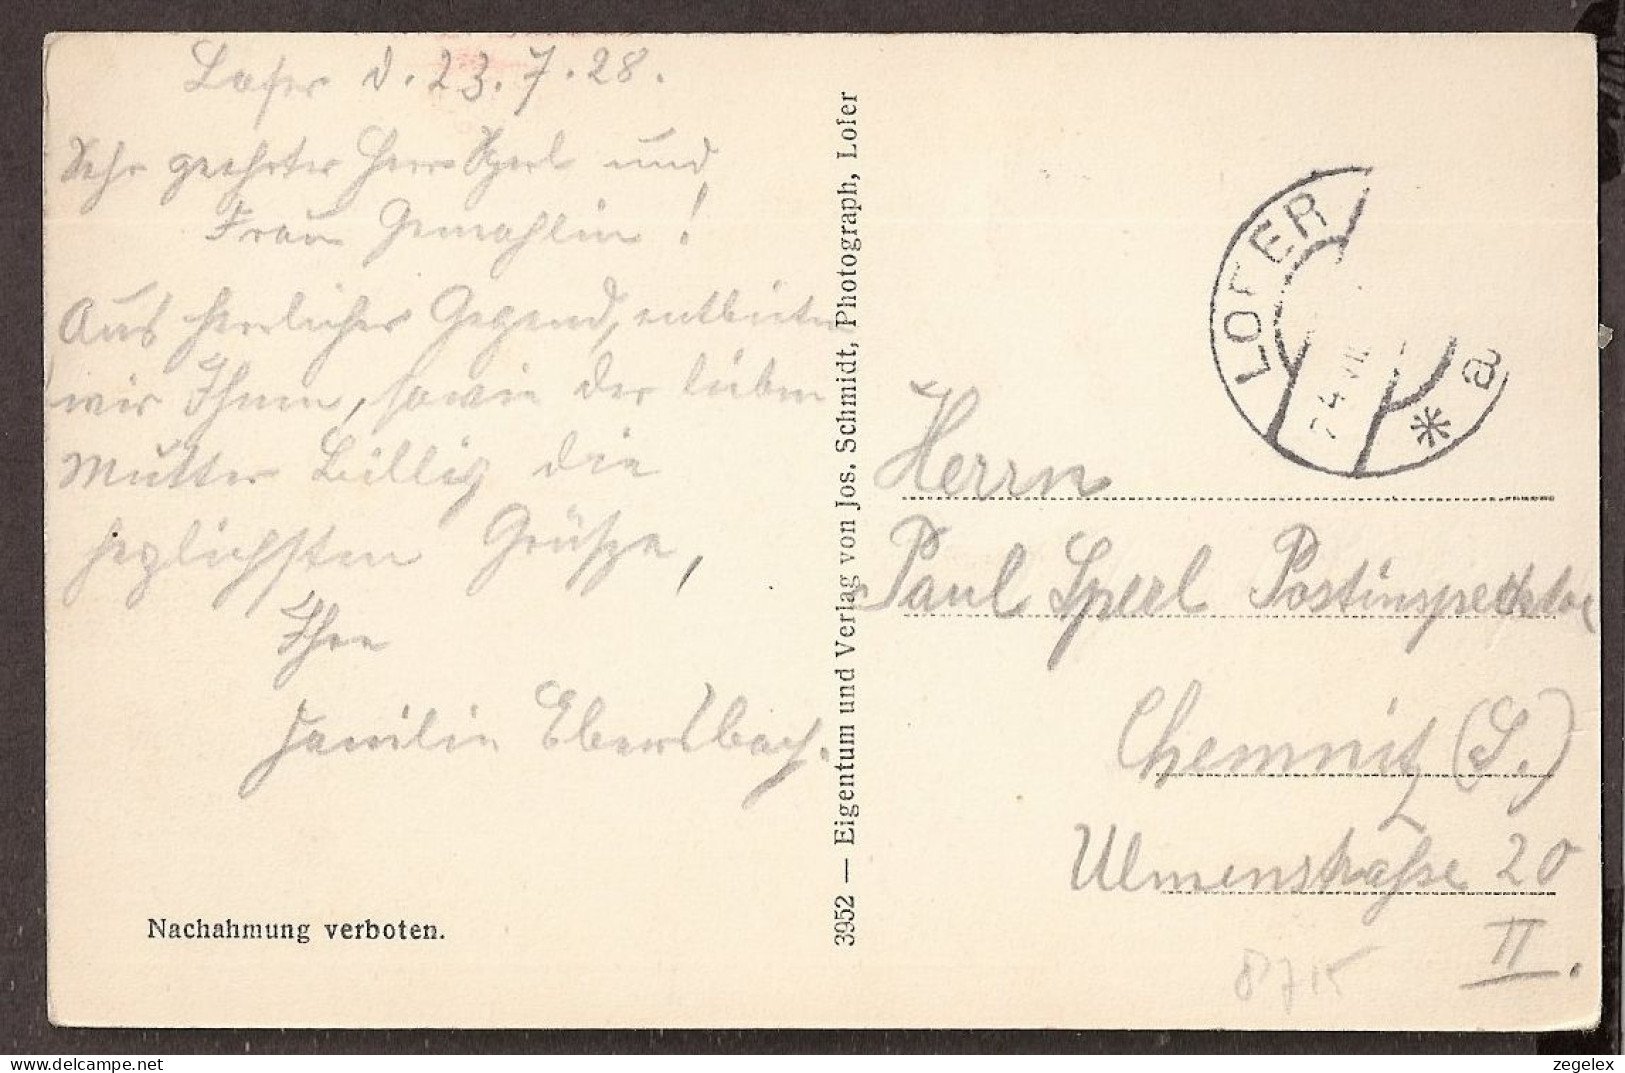 Lofer d. 23.7.28.
Sehr geehrter Herr Sperl und
Frau Gemahlin!
Aus herrlicher Gegend, entbieten
wir Ihnen, sowie der lieben
Mutter Billig die
herzlichsten Grüsze,
Ihre
Familie Ebersbach.
Nachahmung verboten.
3952 — Eigentum und Verlag von Jos. Schmidt, Photograph, Lofer
LOFER
24.VII
* a
Herrn
Paul Sperl Postinspektor
Chemnitz (S.)
Ulmenstraße 20
II.
8715
zegelex